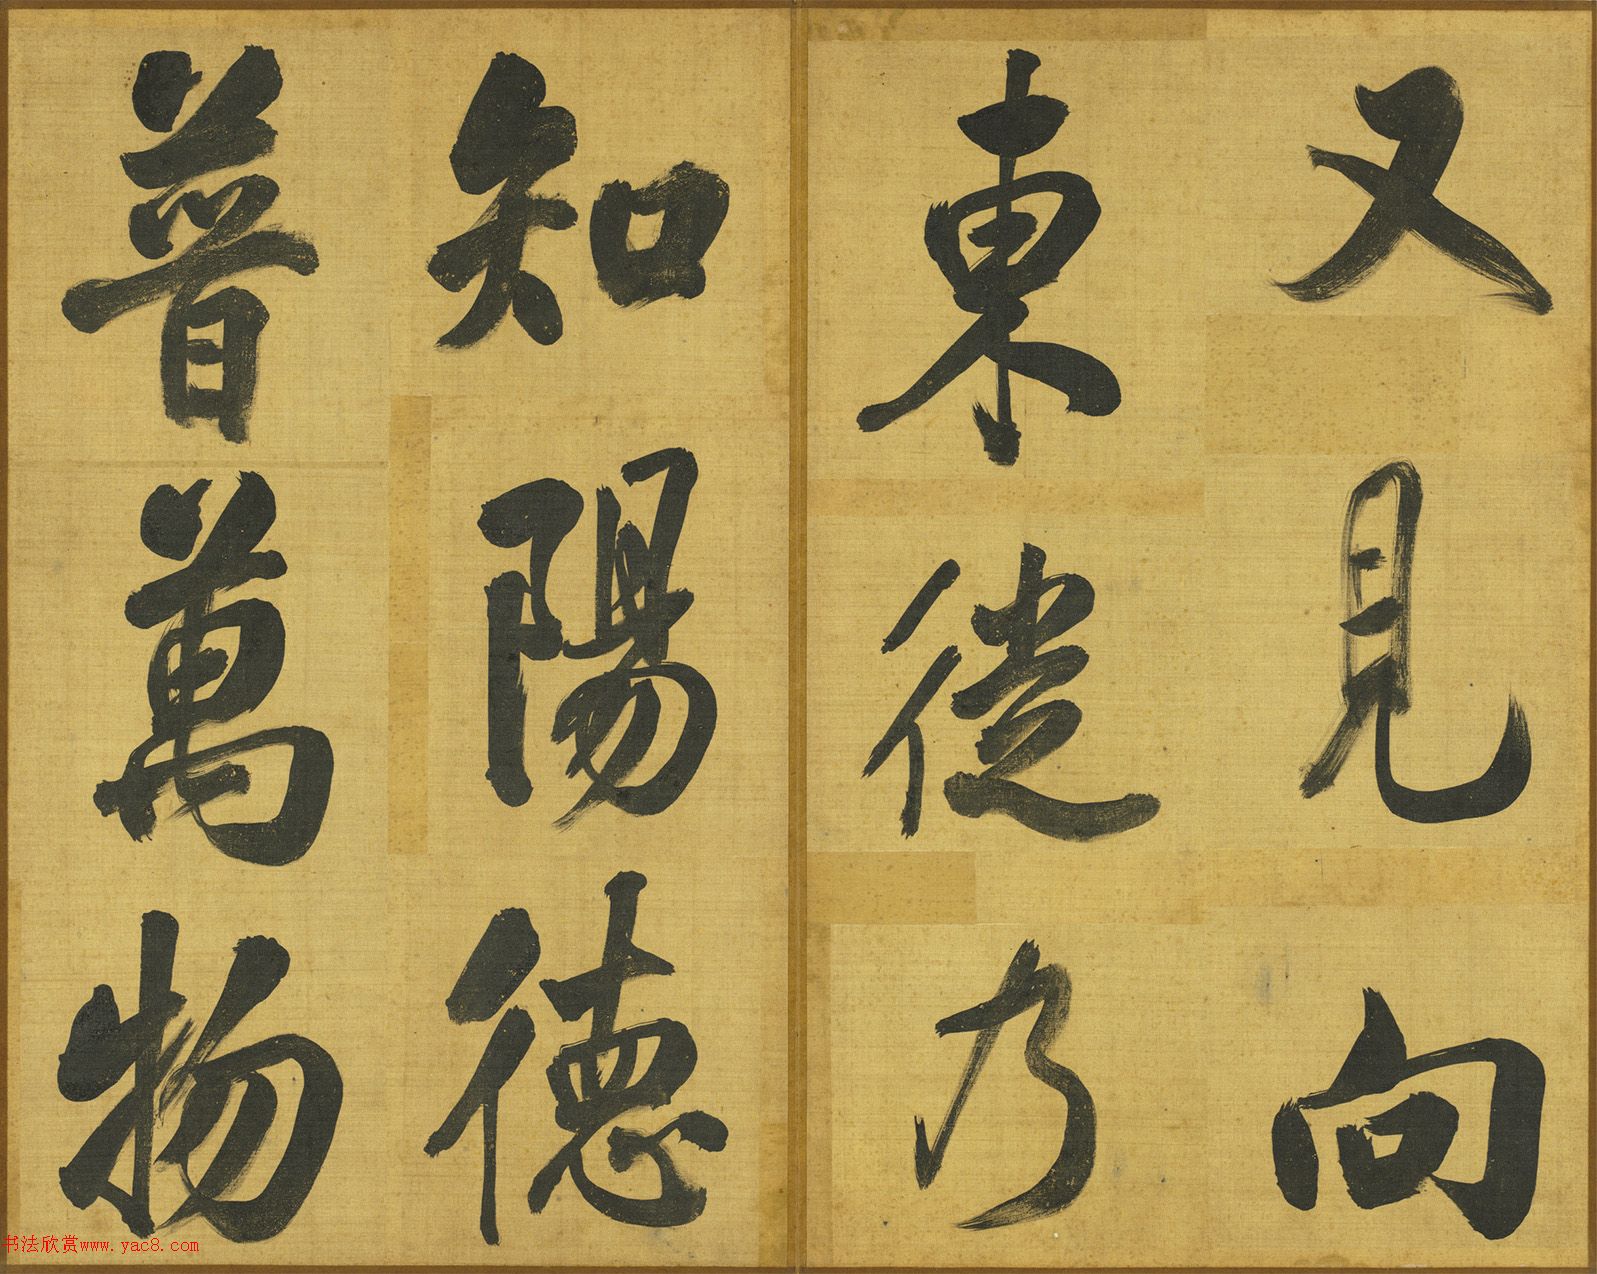 又見向
東徙乃
知陽德
普萬物
书法欣赏www.yac8.com